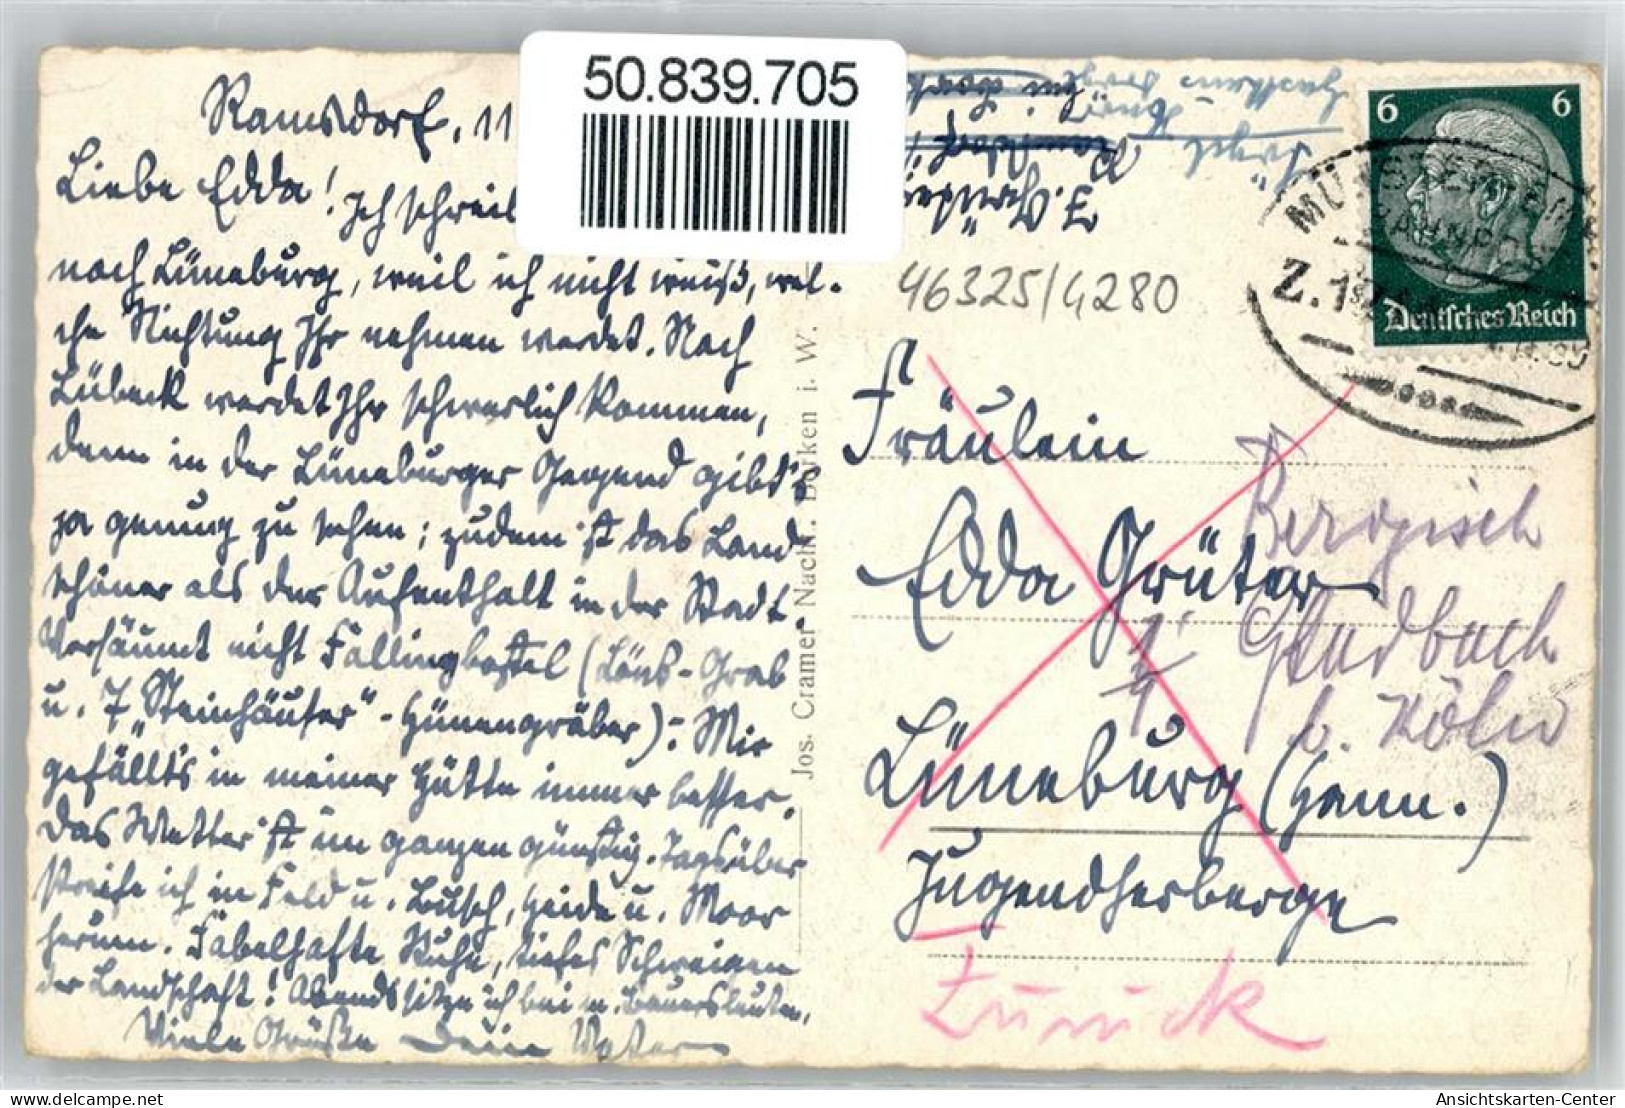 50.839.705
Ramsdorf, 11
Liebe Edda! Ich schreib
nach Lüneburg, weil ich nicht weiß, wel-
che Richtung Ihr nehmen werdet. Nach
Lübeck werdet Ihr schwerlich kommen,
denn in der Lüneburger Gegend gibt's
ja genug zu sehen; zudem ist das Land
schöner als der Aufenthalt in der Stadt.
Versäumt nicht Fallingbostel (Löns-Grab
u. 7 "Steinhäuser" - Hünengräber)! Mir
gefällt's in meiner Hütte immer besser.
Das Wetter ist im ganzen günstig. Tagsüber
streife ich in Feld u. Busch, Heide u. Moor
herum. Fabelhafte Ruhe, tiefes Schweigen
der Landschaft! Abends sitze ich bei n. Bauersleuten.
Viele Grüße Dein Vater
Jos. Cramer Nachf. Borken i. W.
46325/4280
6 6
Deutsches Reich
MÜNSTER
BAHNPOST
Z.1
Fräulein
Edda Grüter
Lüneburg (Hann.)
Jugendherberge
Bergisch
Gladbach
b. Köln
Zurück
Ansichtskarten-Center
delcampe.net